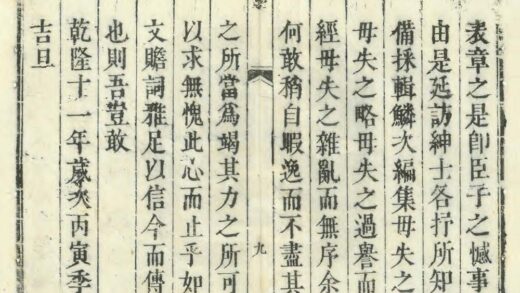 表章之是即臣子之憾事
由是延訪紳士各抒所知
備採輯鱗次編集毋失之
毋失之略毋失之過譽而
經毋失之雜亂而無序余
何敢稍自暇逸而不盡其
九
之所當為竭其力之所可
以求無愧此心而止乎如
文贍詞雅足以信今而傳
也則吾豈敢
乾隆十一年歲次丙寅季
吉旦